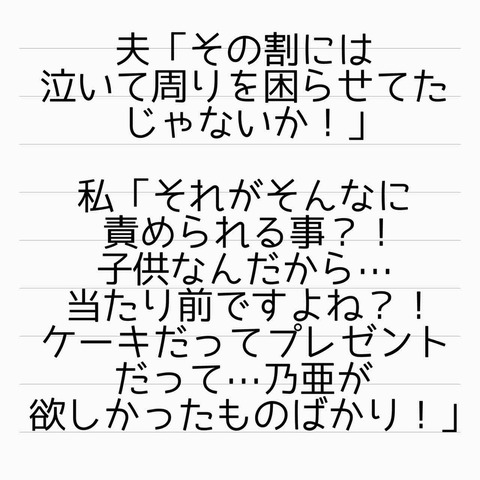 夫「その割には
泣いて周りを困らせてた
じゃないか！」
私「それがそんなに
責められる事？！
子供なんだから…
当たり前ですよね？！
ケーキだってプレゼント
だって…乃亜が
欲しかったものばかり！」